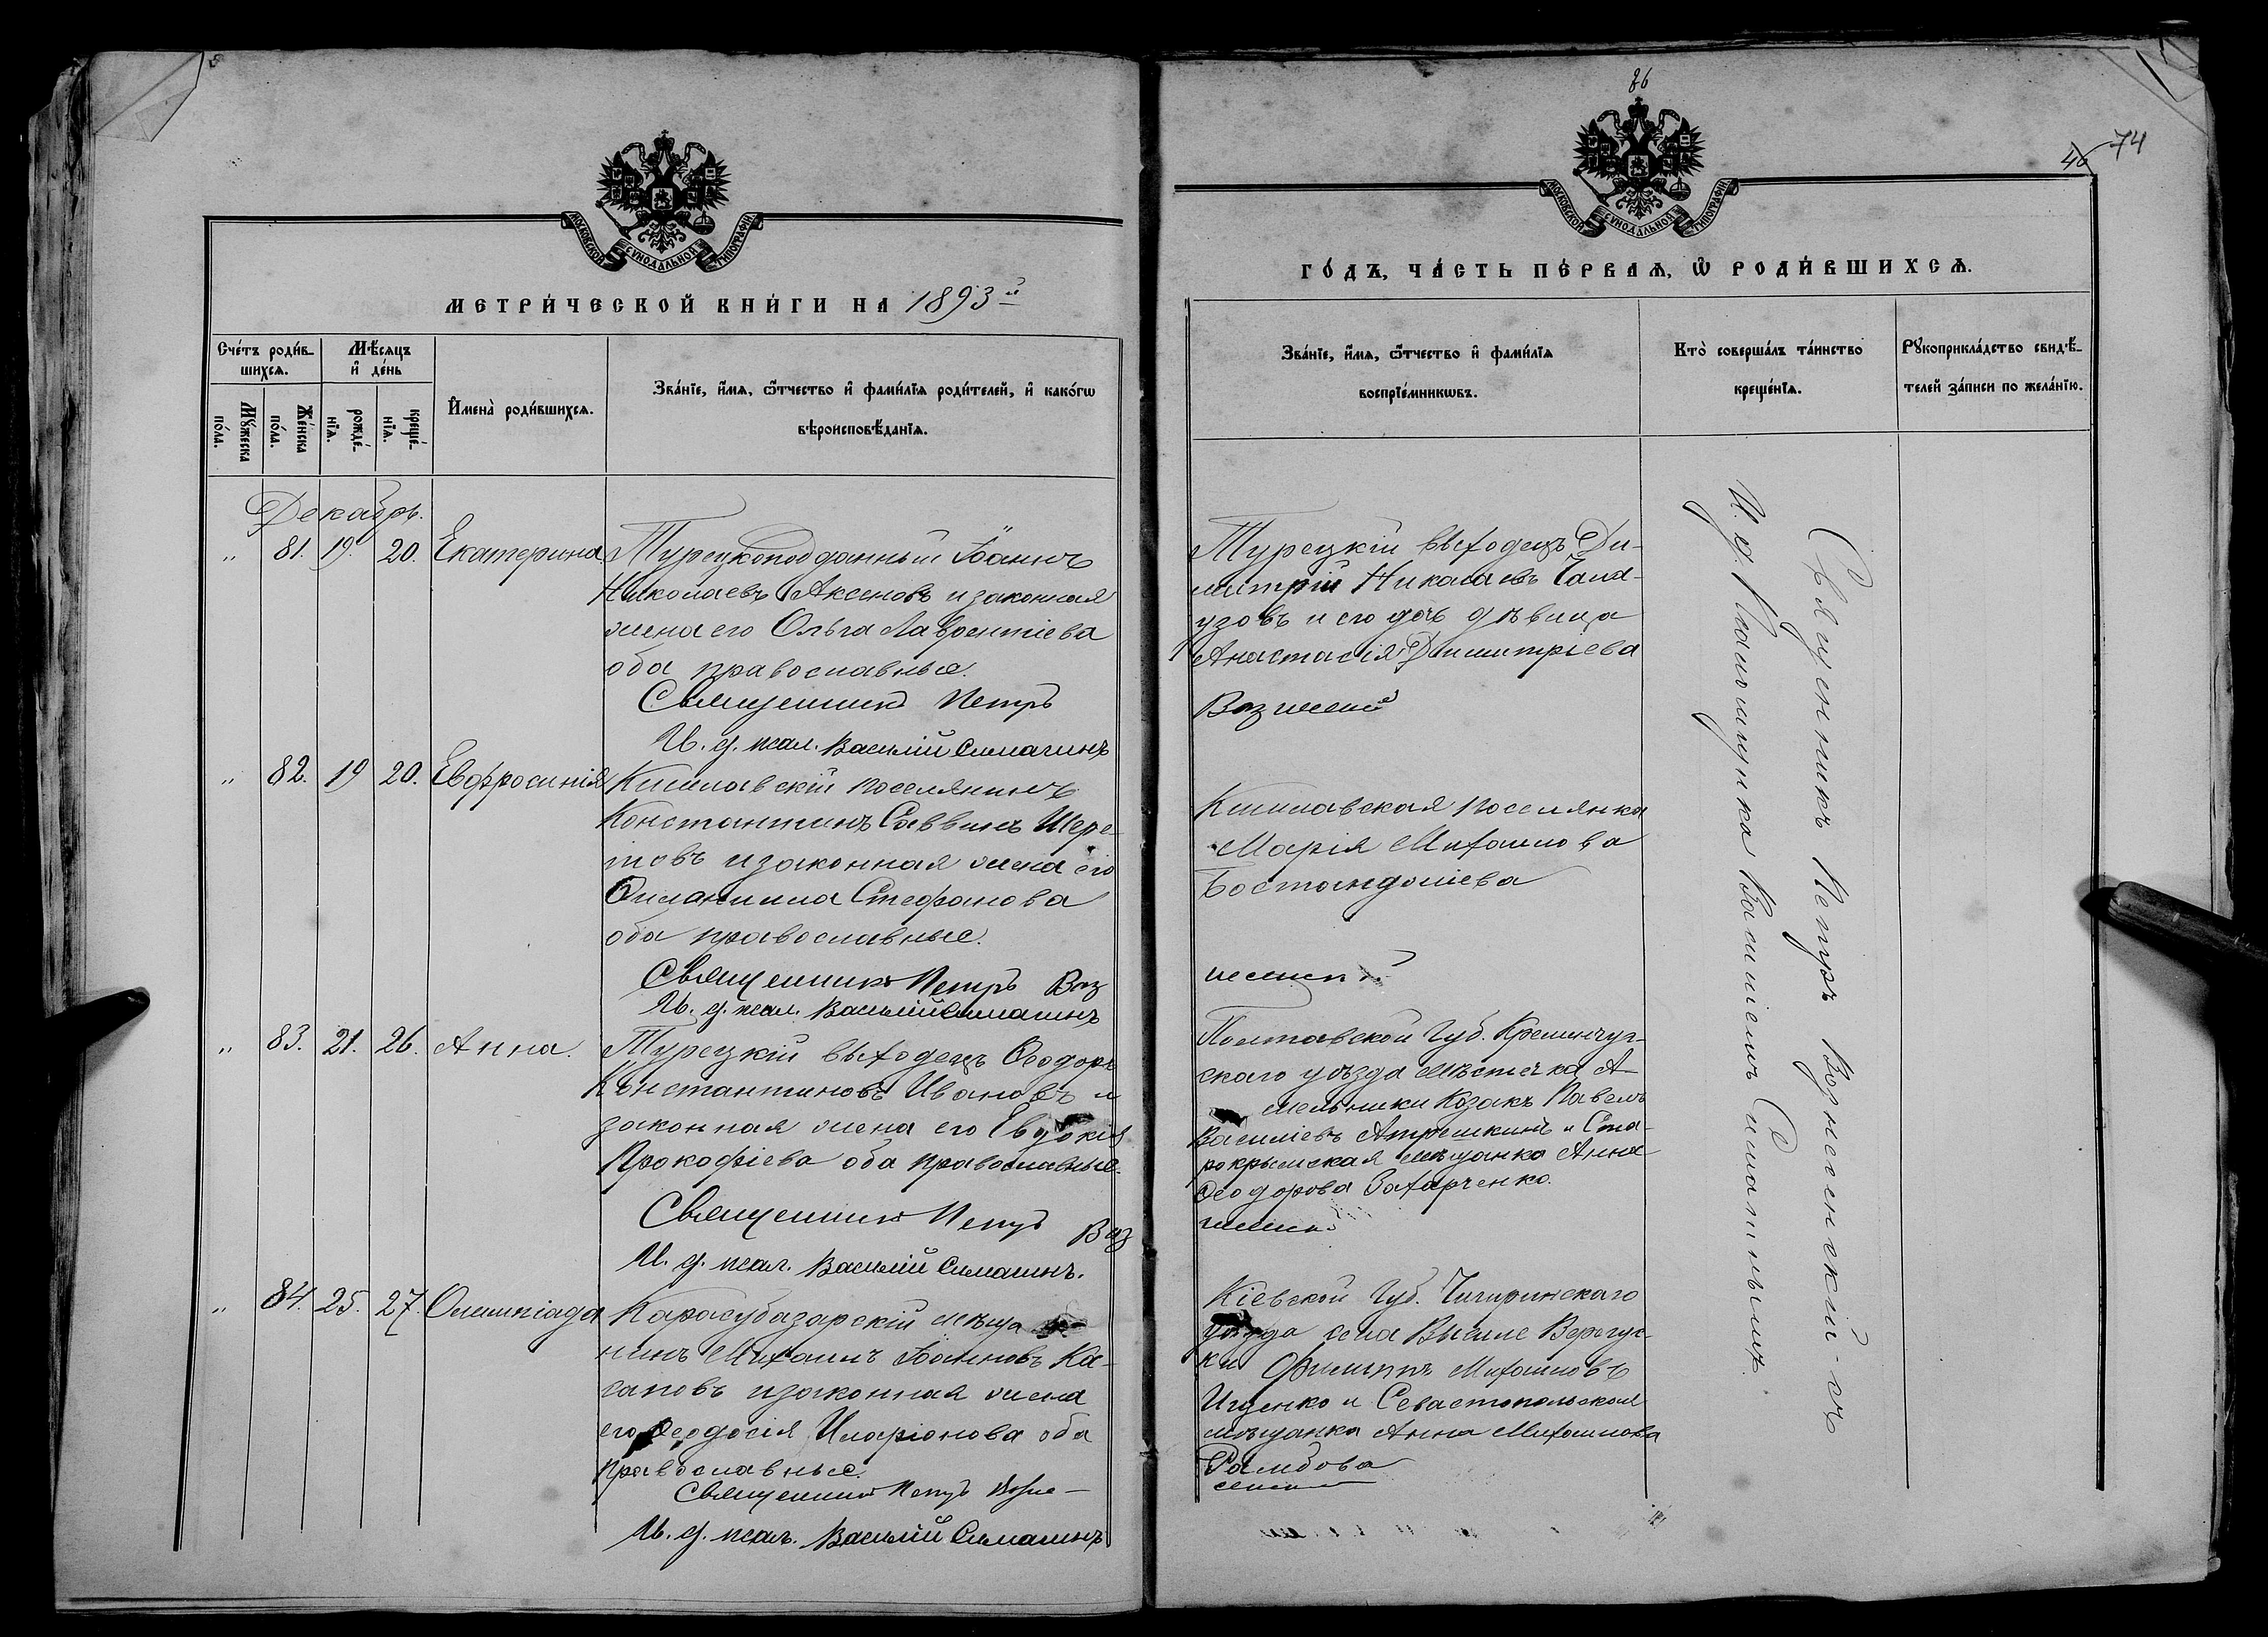 МОСКОВСКОЙ СУНОДАЛЬНОЙ ТИПОГРАФІИ.
МЕТРИ́ЧЕСКОЙ КНИ́ГИ НА 1893й
Сче́тъ роди́в-
шихсѧ.
Мѣ́сѧцъ
и҆ де́нь
Мꙋ́жеска
по́ла.
Же́нска
по́ла.
рожде́-
нїѧ.
креще́-
нїѧ.
И҆мена̀ роди́вшихсѧ.
Зва́нїе, и҆́мѧ, ѻ҆́тчество и҆ фами́лїѧ роди́телей, и҆ како́гѡ
вѣроисповѣ́данїѧ.
Декабрь.
" 81. 19. 20. Екатерина
Турецкоподданный Іоаннъ
Николаевъ Аксеновъ и законная
жена его Ольга Лаврентіева
оба православные.
Священникъ Петръ
И. д. псал. Василій Симагинъ
" 82. 19 20. Евфросинія
Кишлавскій поселянинъ
Константинъ Саввинъ Шере-
товъ и законная жена его
Стефанова
оба православные.
Священникъ Петръ Воз
И. д. псал. Василій Симагинъ
" 83. 21. 26. Анна.
Турецкій выходецъ Ѳеодоръ
Константиновъ Ивановъ и
законная жена его Евдокія
Прокофіева оба православные.
Священникъ Петръ Воз
И. д. псал. Василій Симагинъ.
" 84. 25. 27. Олимпіада
Карасубазарскій мѣща
нинъ Михаилъ Іоанновъ Ка-
гановъ и законная жена
его Ѳеодосія Иларіонова оба
православные.
Священникъ Петръ Возне-
И. д. псал. Василій Симагинъ
86
46 74
МОСКОВСКОЙ СУНОДАЛЬНОЙ ТИПОГРАФІИ.
ГО́ДЪ, ЧА́СТЬ ПЕ́РВАѦ, Ѡ҆ РОДИ́ВШИХСѦ.
Зва́нїе, и҆́мѧ, ѻ҆́тчество и҆ фами́лїѧ
воспрїе́мникѡвъ.
Кто̀ соверша́лъ та́инство
креще́нїѧ.
Рꙋкоприкла́дство свидѣ́-
телей за́писи по жела́нїю.
Турецкій выходецъ Ди-
митрій Николаевъ Чама-
узовъ и его дочь дѣвица
Анастасія Димитріева
Вознесенскій
Кишлавская поселянка
Марія Михаилова
Бостанджіева
несенскій
Полтавской Губ. Кременчуг-
скаго уѣзда мѣстечка А-
мельники Козакъ Павелъ
Василіевъ Атрешкинъ и Ста-
рокрымская мѣщанка Анна
Ѳеодорова Захарченко.
несенскій
Кіевской Губ. Чигиринскаго
уѣзда села Вышне Верегус-
ки Филиппъ Михаиловъ
Ищенко и Севастопольская
мѣщанка Анна Михаилова
Рамбова
сенскій
Священникъ Петръ Вознесенскій съ
И. д. Псаломщика Василіемъ Симагинымъ.